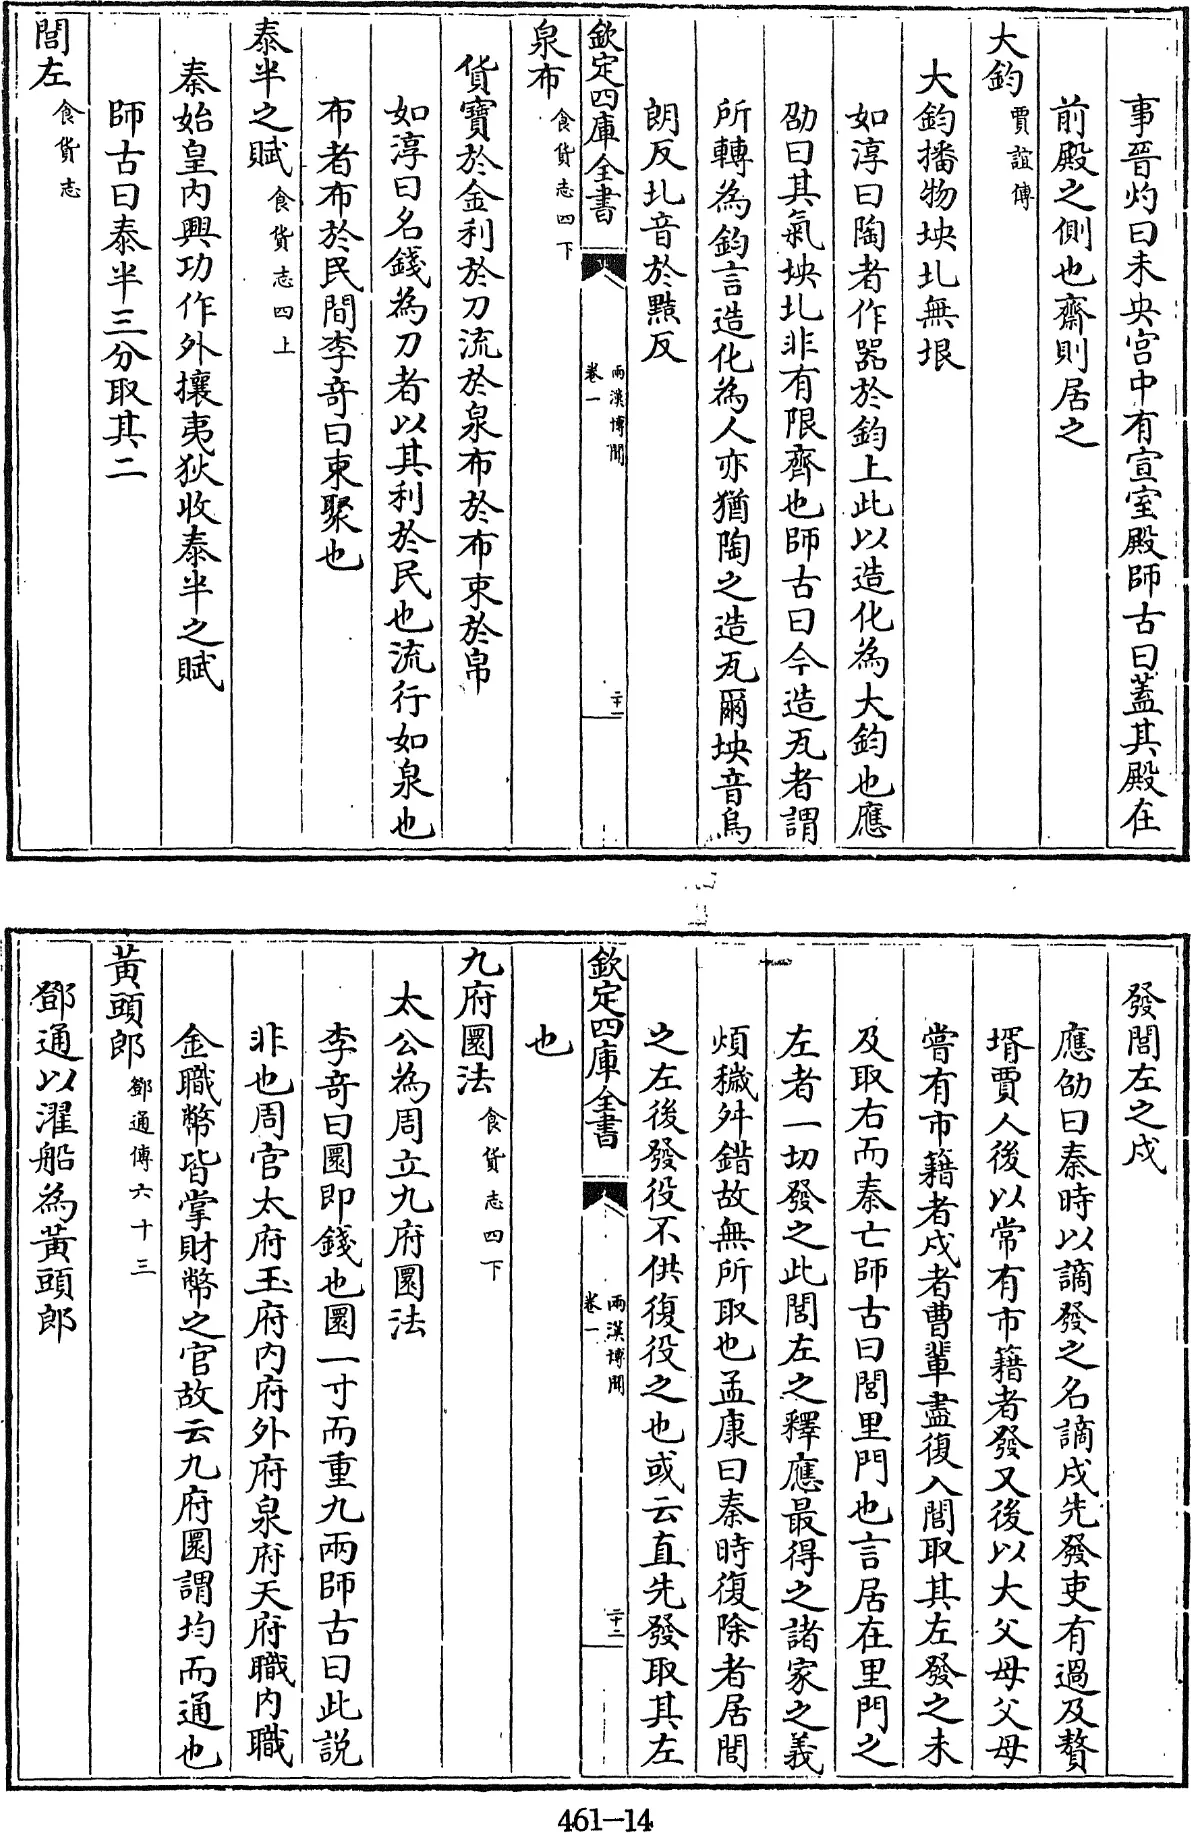 事晉灼曰未央宫中有宣室殿師古曰蓋其殿在
前殿之側也齋則居之
大鈞 賈誼傳
大鈞播物坱圠無垠
如淳曰陶者作器於鈞上此以造化為大鈞也應
劭曰其氣坱圠非有限齊也師古曰今造瓦者謂
所轉為鈞言造化為人亦猶陶之造瓦爾坱音烏
朗反圠音於黠反
欽定四庫全書 兩漢博聞 卷一 二十一
泉布 食貨志四下
貨寶於金利於刀流於泉布於布束於帛
如淳曰名錢為刀者以其利於民也流行如泉也
布者布於民間李奇曰束聚也
泰半之賦 食貨志四上
秦始皇内興功作外攘夷狄收泰半之賦
師古曰泰半三分取其二
閭左 食貨志
發閭左之戍
應劭曰秦時以謫發之名謫戍先發吏有過及贅
壻賈人後以常有市籍者發又後以大父母父母
嘗有市籍者戍者曹輩盡復入閭取其左發之未
及取右而秦亡師古曰閭里門也言居在里門之
左者一切發之此閭左之釋應最得之諸家之義
煩穢舛錯故無所取也孟康曰秦時復除者居閭
之左後發役不供復役之也或云直先發取其左
欽定四庫全書 兩漢博聞 卷一 二十二
也
九府圜法 食貨志四下
太公為周立九府圜法
李奇曰圜即錢也圜一寸而重九兩師古曰此説
非也周官太府玉府内府外府泉府天府職内職
金職幣皆掌財幣之官故云九府圜謂均而通也
黃頭郎 鄧通傳六十三
鄧通以濯船為黃頭郎
461-14